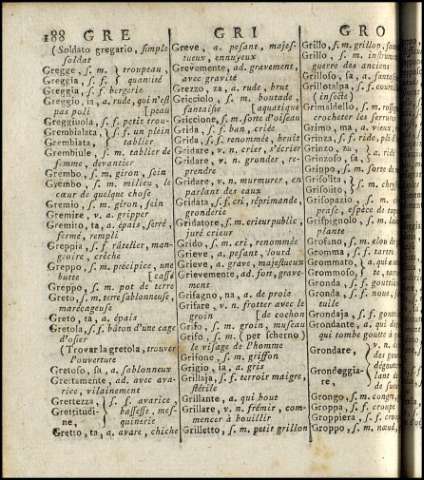 188 GRE GRI GRO
(Soldato gregario, simple
soldat
Gregge, s. m. } troupeau,
Greggia, s. f. } quantité
Greggia, s. f. bergerie
Greggio, ia, a. rude, qui n'est
pas poli [peau
Greggiuola, s. f. petit trou-
Grembialata, s. f. un plein
Grembiata, tablier
Grembiule, s. m. tablier de
femme, devantier
Grembo, s. m. giron, sein
Grembo, s. m. milieu, le
cœur de quelque chose
Gremio, s. m. giron, sein
Gremire, v. a. gripper
Gremito, ta, a. épais, serré,
fermé, rempli
Greppia, s. f. râtelier, man-
geoire, crêche
Greppo, s. m. précipice, une
butte [cassé
Greppo, s. m. pot de terre
Greto, s. m. terre sablonneuse,
marécageuse
Greto, ta, a. épais
Gretola, s. f. bâton d'une cage
d'osier
(Trovar la gretola, trouver
l'ouverture
Gretoso, sa, a. sablonneux
Grettamente, ad. avec ava-
rice, vilainement
Grettezza, s. f. avarice,
Grettitudi- } bassesse, mes-
ne, quinerie
Gretto, ta, a. avare, chiche
Greve, a. pesant, majes-
tueux, ennuyeux
Grevemente, ad. gravement,
avec gravité
Grezzo, za, a. rude, brut
Gricciolo, s. m. boutade,
fantaisie [aquatique
Griccione, s. m. sorte d'oiseau
Grida, s. f. ban, criée
Grida, s. f. renommée, bruit
Gridare, v. n. crier, s'écrier
Gridare, v. n. gronder, re-
prendre
Gridare, v. n. murmurer, en
parlant des eaux
Gridata, s. f. cri, réprimande,
gronderie
Gridatore, s. m. crieur public,
juré crieur
Grido, s. m. cri, renommée
Grieve, a. pesant, lourd
Grieve, a. grave, majestueux
Grievemente, ad. fort, grave-
ment
Grifagno, na, a. de proie
Grifare, v. n. frotter avec le
groin [de cochon
Grifo, s. m. groin, museau
Grifo, s. m. (per scherno)
le visage de l'homme
Grifone, s. m. griffon
Grigio, ia, a. gris
Grillaja, s. f. terroir maigre,
stérile
Grillante, a. qui bout
Grillare, v. n. frémir, com-
mencer à bouillir
Grilletto, s. m. petit grillon
Grillo, s. m. grillon,
Grillo, s. m.
guerre des anciens
Grilloso, sa, a.
Grillotalpa, s. f.
(insecte)
Grimaldello, s. m.
crocheter les
Grimo, ma, a.
Grinza, s. f. ride,
Grinzo, ta,
Grinzoso, sa,
Grippo, s. m. sorte de
Grisolita,
Grisolito, } s. m.
Grisopazio, s. m.
prase, espèce de
Grispignolo, s. m.
plante
Grofano, s. m.
Gromma, s. f.
Grommato, a.
Grommoso,
Gronda, s. f.
Gronda, s. f.
tuile
Grondaja, s. f.
Grondante, a. qui
qui tombe goutte à
Grondare, v. n.
Grondeggia-
re,
Grongo, s. m.
Groppa, s. f. croupe
Groppiera, s. f.
Groppo, s. m.